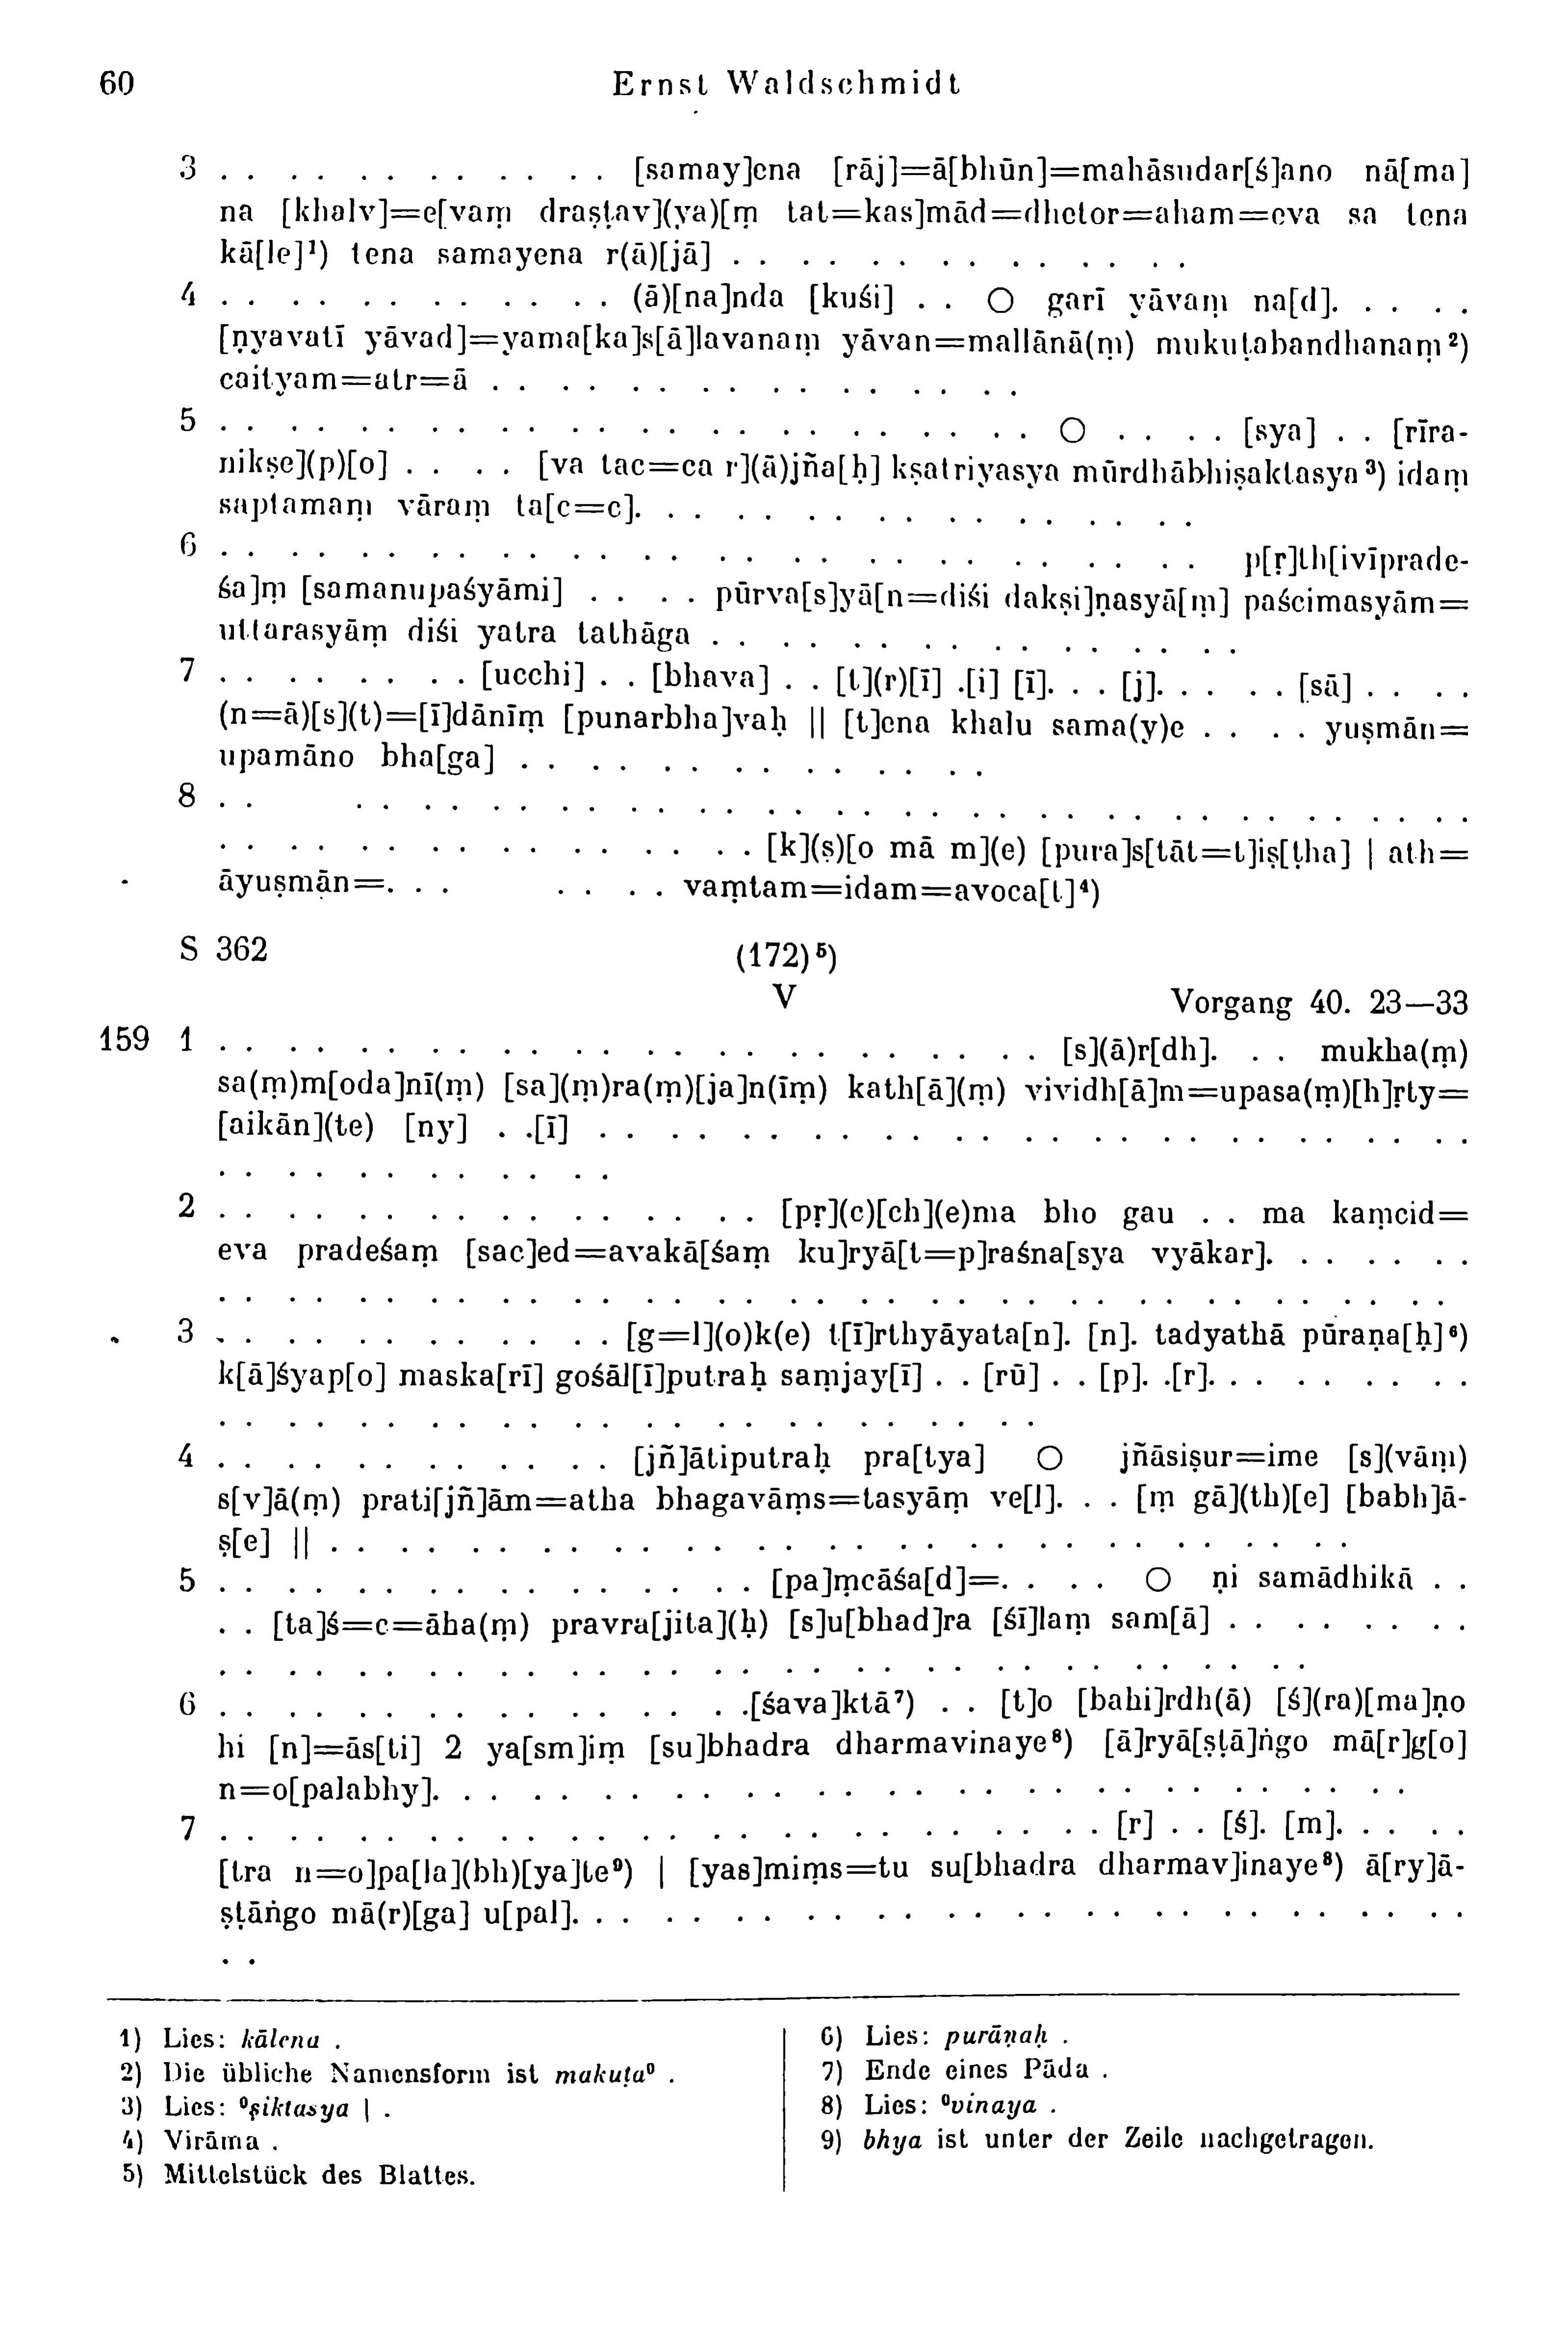 60 Ernst Waldschmidt
3 . . . . . . . . . . . . [samay]ena [rāj]=ā[bhūn]=mahāsudar[ś]ano nā[ma]
na [khalv]=e[vaṃ draṣṭav](ya)[ṃ tat=kas]mād=dhetor=aham=eva sa tena
kā[le]¹) tena samayena r(ā)[jā] . . . . . . . . . . . . . .
4 . . . . . . . . . . . . (ā)[na]nda [kuśi] . . ○ garī yāvaṃ na[d]. . . . .
[ṇyavatī yāvad]=yama[ka]s[ā]lavanaṃ yāvan=mallānā(ṃ) mukuṭabandhanaṃ²)
caityam=atr=ā . . . . . . . . . . . . . . . .
5 . . . . . . . . . . . . . . . . . . . . . . . . ○ . . . . [sya] . . [rīra-
nikṣe](p)[o] . . . . [va tac=ca r](ā)jña[ḥ] kṣatriyasya mūrdhābhiṣaktasya³) idaṃ
saptamaṃ vāraṃ ta[c=c]. . . . . . . . . . . . . . . . .
6 . . . . . . . . . . . . . . . . . . . . . . . . . . . . p[ṛ]th[ivīprade-
śa]ṃ [samanupaśyāmi] . . . . pūrva[s]yā[n=diśi dakṣi]ṇasyā[ṃ] paścimasyām=
uttarasyāṃ diśi yatra tathāga . . . . . . . . . . . . . . . .
7 . . . . . . . . [ucchi] . . [bhava] . . [t](r)[ī] .[i] [ī]. . . [j]. . . . . [sā] . . . .
(n=ā)[s](t)=[ī]dānīṃ [punarbha]vaḥ || [t]ena khalu sama(y)e . . . . yuṣmān=
upamāno bha[ga] . . . . . . . . . . . . . .
8 . . . . . . . . . . . . . . . . . . . . . . . . . . . . . . . . . . .
. . . . . . . . . . . . . . . . [k](ṣ)[o mā m](e) [pura]s[tāt=t]iṣ[ṭha] | ath=
āyuṣmān=. . . . . . . vaṃtam=idam=avoca[t]⁴)
S 362 (172)⁵)
V Vorgang 40. 23—33
159 1 . . . . . . . . . . . . . . . . . . . . . . . . [s](ā)r[dh]. . . mukha(ṃ)
sa(ṃ)m[oda]nī(ṃ) [sa](ṃ)ra(ṃ)[ja]n(īṃ) kath[ā](ṃ) vividh[ā]m=upasa(ṃ)[h]ṛty=
[aikān](te) [ny] . .[ī] . . . . . . . . . . . . . . . . . . . . . . . . . .
. . . . . . . . . . . .
2 . . . . . . . . . . . . . . . . [pṛ](c)[ch](e)ma bho gau . . ma kaṃcid=
eva pradeśaṃ [sac]ed=avakā[śaṃ ku]ryā[t=p]raśna[sya vyākar]. . . . . . .
. . . . . . . . . . . . . . . . . . . . . . . . . . . . . . . . . . . .
3 . . . . . . . . . . . . [g=l](o)k(e) t[ī]rthyāyata[n]. [n]. tadyathā pūraṇa[ḥ]⁶)
k[ā]śyap[o] maska[rī] gośāl[ī]putraḥ saṃjay[ī] . . [rū] . . [p]. .[r]. . . . . . . . .
. . . . . . . . . . . . . . . . . . . . . . . .
4 . . . . . . . . . . . . [jñ]ātiputraḥ pra[tya] ○ jñāsiṣur=ime [s](vāṃ)
s[v]ā(ṃ) prati[jñ]ām=atha bhagavāṃs=tasyāṃ ve[l]. . . [ṃ gā](th)[e] [babh]ā-
ṣ[e] || . . . . . . . . . . . . . . . . . . . . . . . . . . . . . .
5 . . . . . . . . . . . . . . . . [pa]ṃcāśa[d]=. . . . ○ ṇi samādhikā . .
. . [ta]ś=c=āha(ṃ) pravra[jita](ḥ) [s]u[bhad]ra [śī]laṃ sam[ā] . . . . . . . .
. . . . . . . . . . . . . . . . . . . . . . . . . . . . . . . .
6 . . . . . . . . . . . . . . . .[śava]ktā⁷) . . [t]o [bahi]rdh(ā) [ś](ra)[ma]ṇo
hi [n]=ās[ti] 2 ya[sm]iṃ [su]bhadra dharmavinaye⁸) [ā]ryā[ṣṭā]ṅgo mā[r]g[o]
n=o[palabhy]. . . . . . . . . . . . . . . . . . . . . . . . . . . . .
7 . . . . . . . . . . . . . . . . . . . . . . . . . . [r] . . [ś]. [m]. . . . .
[tra n=o]pa[la](bh)[ya]te⁹) | [yas]miṃs=tu su[bhadra dharmav]inaye⁸) ā[ry]ā-
ṣṭāṅgo mā(r)[ga] u[pal]. . . . . . . . . . . . . . . . . . . . . . . . . . .
. .
1) Lies: kālena .
2) Die übliche Namensform ist makuṭa⁰ .
3) Lies: ⁰ṣiktasya | .
4) Virāma .
5) Mittelstück des Blattes.
6) Lies: purāṇaḥ .
7) Ende eines Pāda .
8) Lies: ⁰vinaya .
9) bhya ist unter der Zeile nachgetragen.